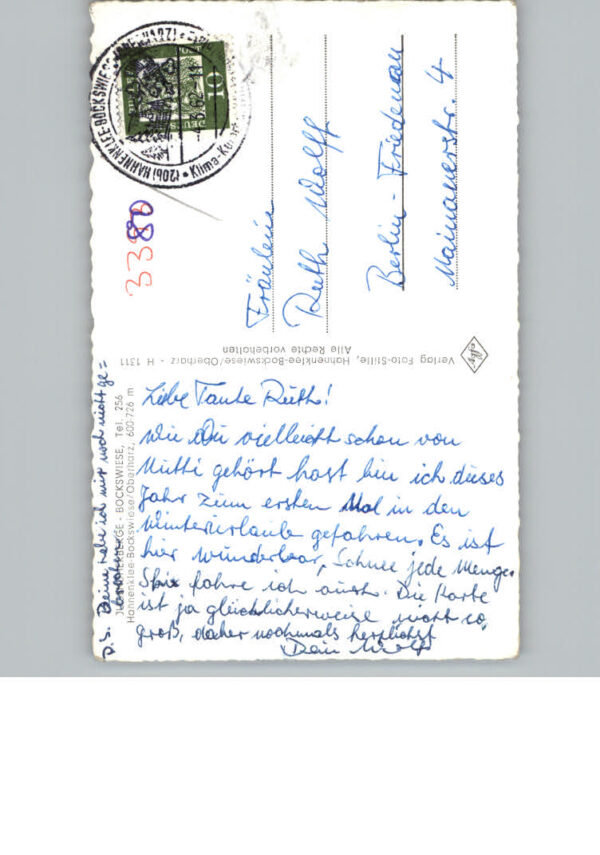 Liebe Tante Ruth!
Wie Du vielleicht schon von
Mutti gehört hast bin ich dieses
Jahr zum ersten Mal in den
Winterurlaub gefahren. Es ist
hier wunderbar, Schnee jede Menge.
Ski fahre ich auch. Die Karte
ist ja glücklicherweise nicht so
groß, daher nochmals herzlichst
Dein Wolf
P.S. Beine habe ich mir noch nicht ge=
brochen
JUGENDHERBERGE - BOCKSWIESE, Tel. 256
Hahnenklee-Bockswiese/Oberharz, 600-726 m
Verlag Foto-Stille, Hahnenklee-Bockswiese/Oberharz - H 1311
Alle Rechte vorbehalten
Agfa
Fräulein
Ruth Wolff
Berlin - Friedenau
Mainauerstr. 4
33
80
10
(20b) HAHNENKLEE-BOCKSWIESE (OBERHARZ)